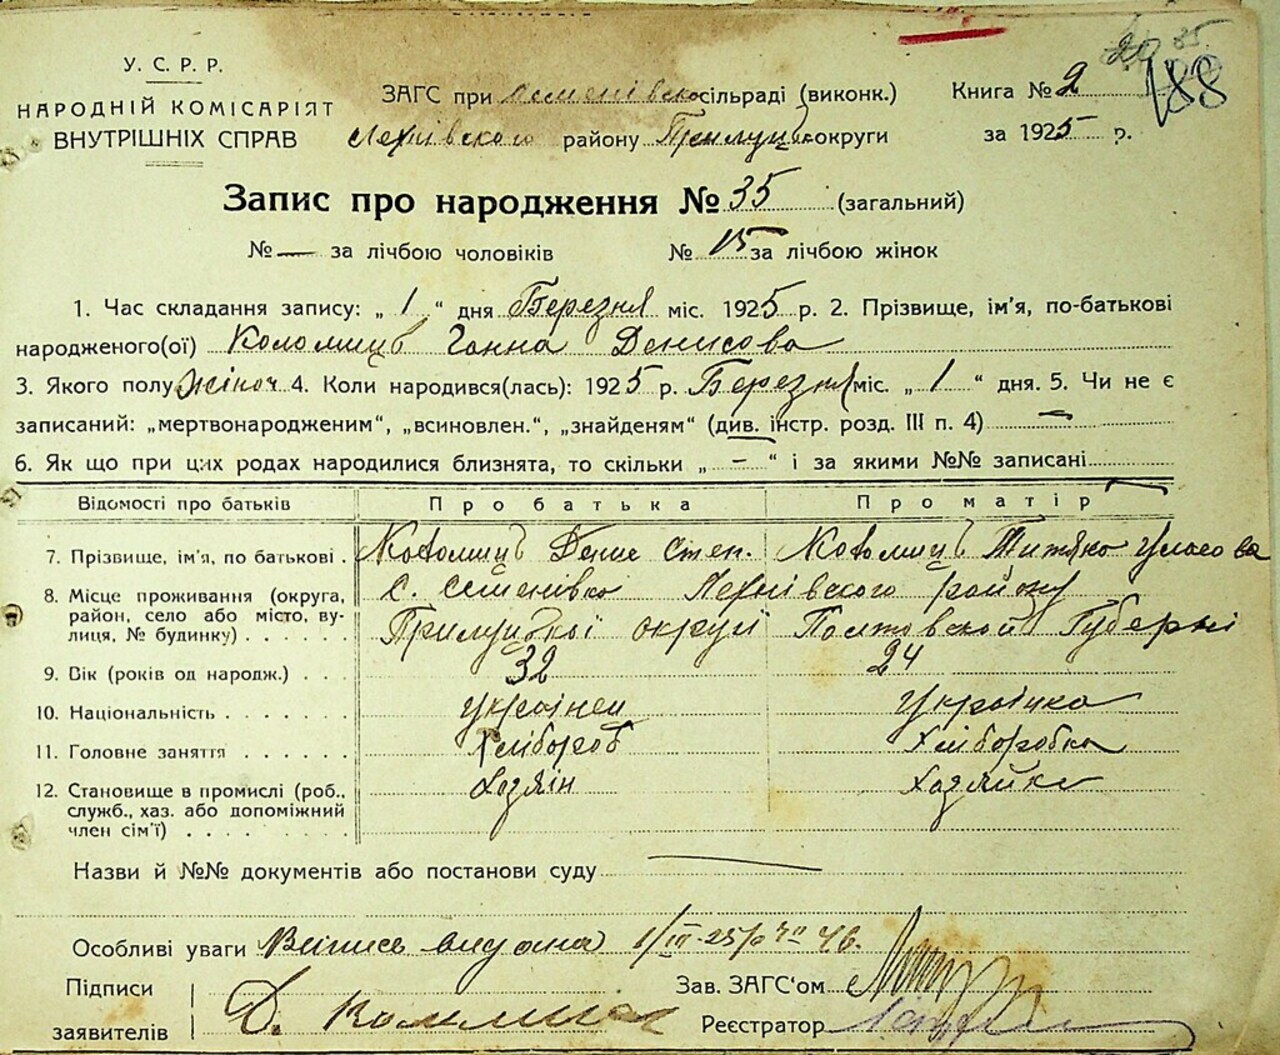 У. С. Р. Р.
НАРОДНІЙ КОМІСАРІЯТ
ВНУТРІШНІХ СПРАВ
ЗАГС при сільраді (виконк.)
району округи
Книга № 2
за 1925 р.
188
Запис про народження № 35 (загальний)
№ — за лічбою чоловіків № 15 за лічбою жінок
1. Час складання запису: „ 1 “ дня Березня міс. 1925 р. 2. Прізвище, ім'я, по-батькові
народженого(ої) Коломиць Ганна Денисова
3. Якого полу жіноч 4. Коли народився(лась): 1925 р. Березня міс. „ 1 “ дня. 5. Чи не є
записаний: „мертвонародженим“, „всиновлен.“, „знайденям“ (див. інстр. розд. III п. 4) —
6. Як що при цих родах народилися близнята, то скільки „ — “ і за якими №№ записані
Відомості про батьків Про батька Про матір
7. Прізвище, ім'я, по батькові . Коломиць Денис Степ. Коломиць
8. Місце проживання (округа, с. району
район, село або місто, ву-
лиця, № будинку) . . . . . . Прилуцької округи Полтовской Губерні
9. Вік (років од народж.) . . . 32 24
10. Національність . . . . . . . українец українка
11. Головне заняття . . . . . . Хлібороб Хліборобка
12. Становище в промислі (роб., Хозяін Хазяйка
служб., хаз. або допоміжний
член сім'ї) . . . . . . . .
Назви й №№ документів або постанови суду
Особливі уваги Випись видана 1/III-25
Підписи
заявителів
Д.
Зав. ЗАГС'ом
Реєстратор